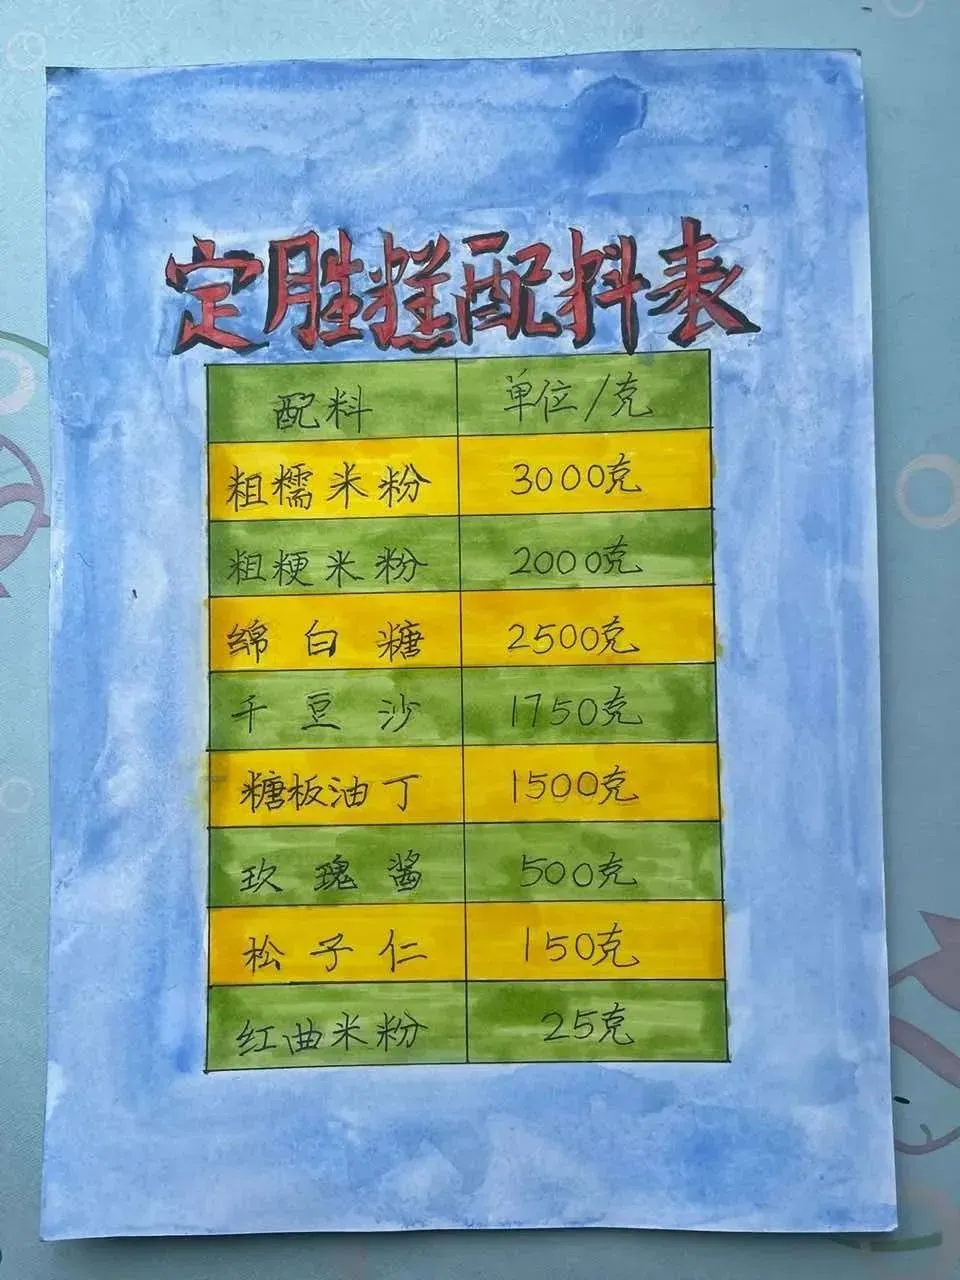 定胜糕配料表
配料 单位/克
粗糯米粉 3000克
粗粳米粉 2000克
绵白糖 2500克
干豆沙 1750克
糖板油丁 1500克
玫瑰酱 500克
松子仁 150克
红曲米粉 25克